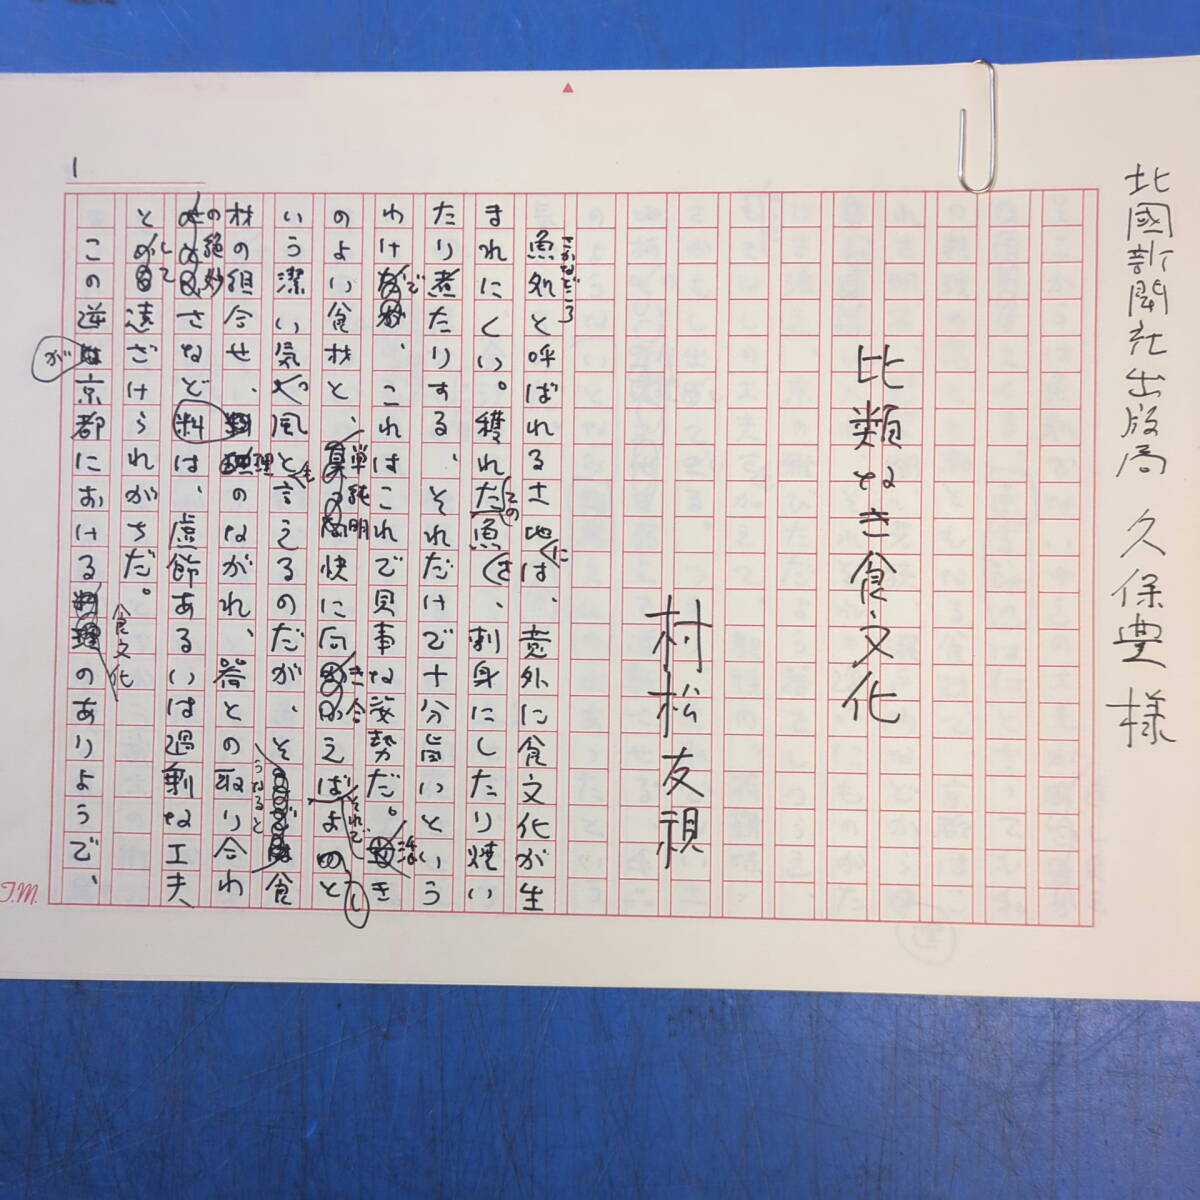 北國新聞社出版局 久保豊様
比類なき食文化
村松友視
魚処と呼ばれる土地には、意外に食文化が生
さかなどころ
まれにくい。穫れたての魚を、刺身にしたり焼い
たり煮たりする、それだけで十分旨いという
わけで、これはこれで見事な姿勢だ。活き
のよい食材と、単純明快に向き合えばそれでよしと
いう潔い気風とも言えるのだが、そうなると食
材の組合せ、料理のながれ、器との取り合わ
せの絶妙さなどは、虚飾あるいは過剰な工夫
として遠ざけられがちだ。
この逆が京都における食文化のありようで、
1
T.M.